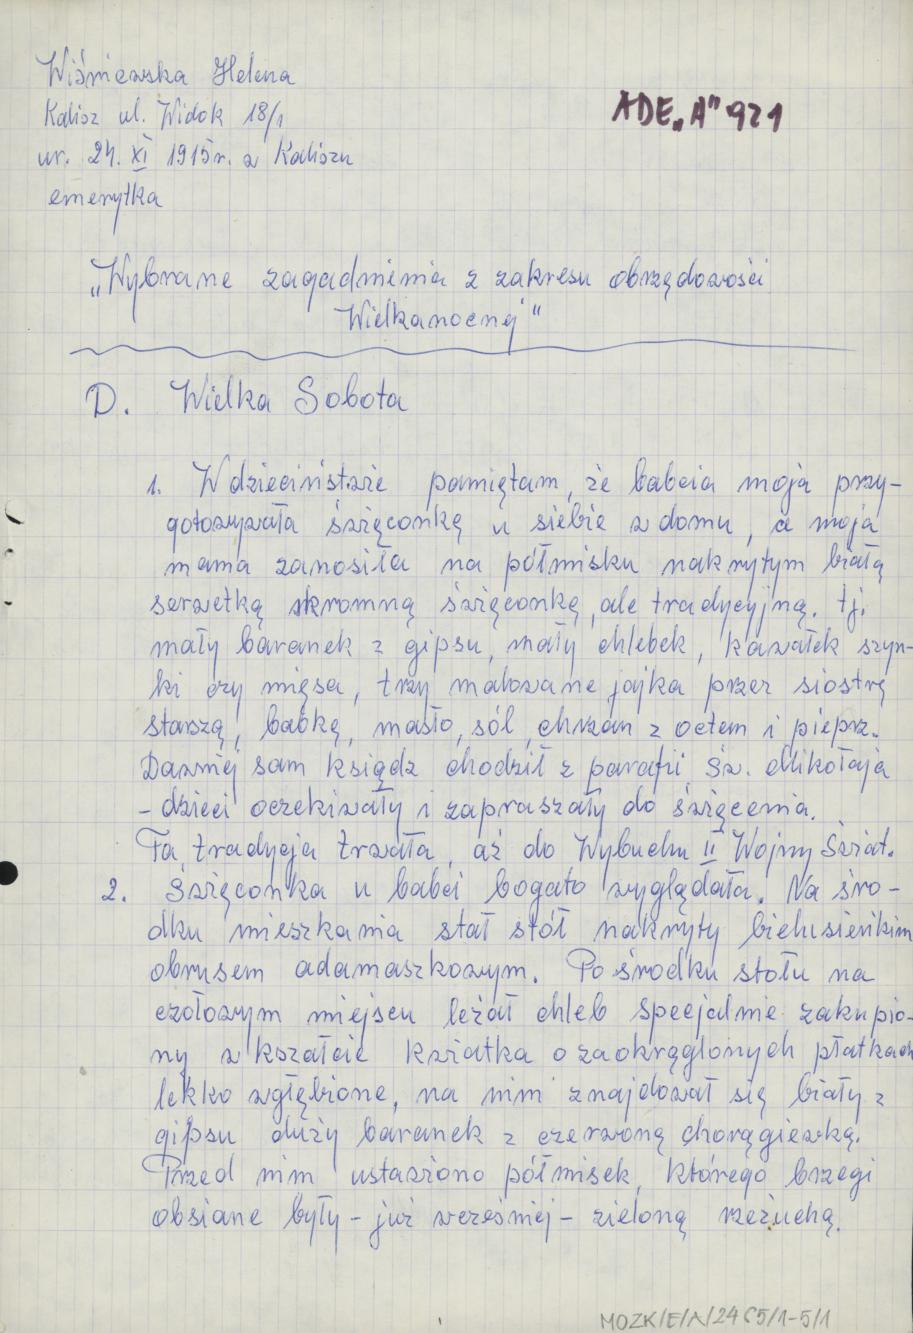 Wiśniewska Helena
ADE „A" 921
Kalisz ul. Widok 18/1
ur. 24. XI 1915r. w Kaliszu
emerytka
„Wybrane zagadnienia z zakresu obrzędowości
Wielkanocnej"
D. Wielka Sobota
1. W dzieciństwie pamiętam, że babcia moja przy-
gotowywała święconkę u siebie w domu, a moja
mama zanosiła na półmisku nakrytym białą
serwetką skromną święconkę, ale tradycyjną. tj.
mały baranek z gipsu, mały chlebek, kawałek szyn-
ki czy mięsa, trzy malowane jajka przez siostrę
starszą, babkę, masło, sól, chrzan z octem i pieprz.
Dawniej sam ksiądz chodził z parafii Św. Mikołaja
- dzieci oczekiwały i zapraszały do święcenia.
Ta tradycja trwała, aż do Wybuchu II Wojny Świat.
2. Święconka u babci bogato wyglądała. Na śro-
dku mieszkania stał stół nakryty bielusieńkim
obrusem adamaszkowym. Po środku stołu na
czołowym miejscu leżał chleb specjalnie zakupio-
ny w kształcie kwiatka o zaokrąglonych płatkach
lekko wgłębione, na nim znajdował się biały z
gipsu duży baranek z czerwoną chorągiewką.
Przed nim ustawiono półmisek, którego brzegi
obsiane były - już wcześniej - zieloną rzeżuchą.
MOZK/E/A/2465/1-5/1